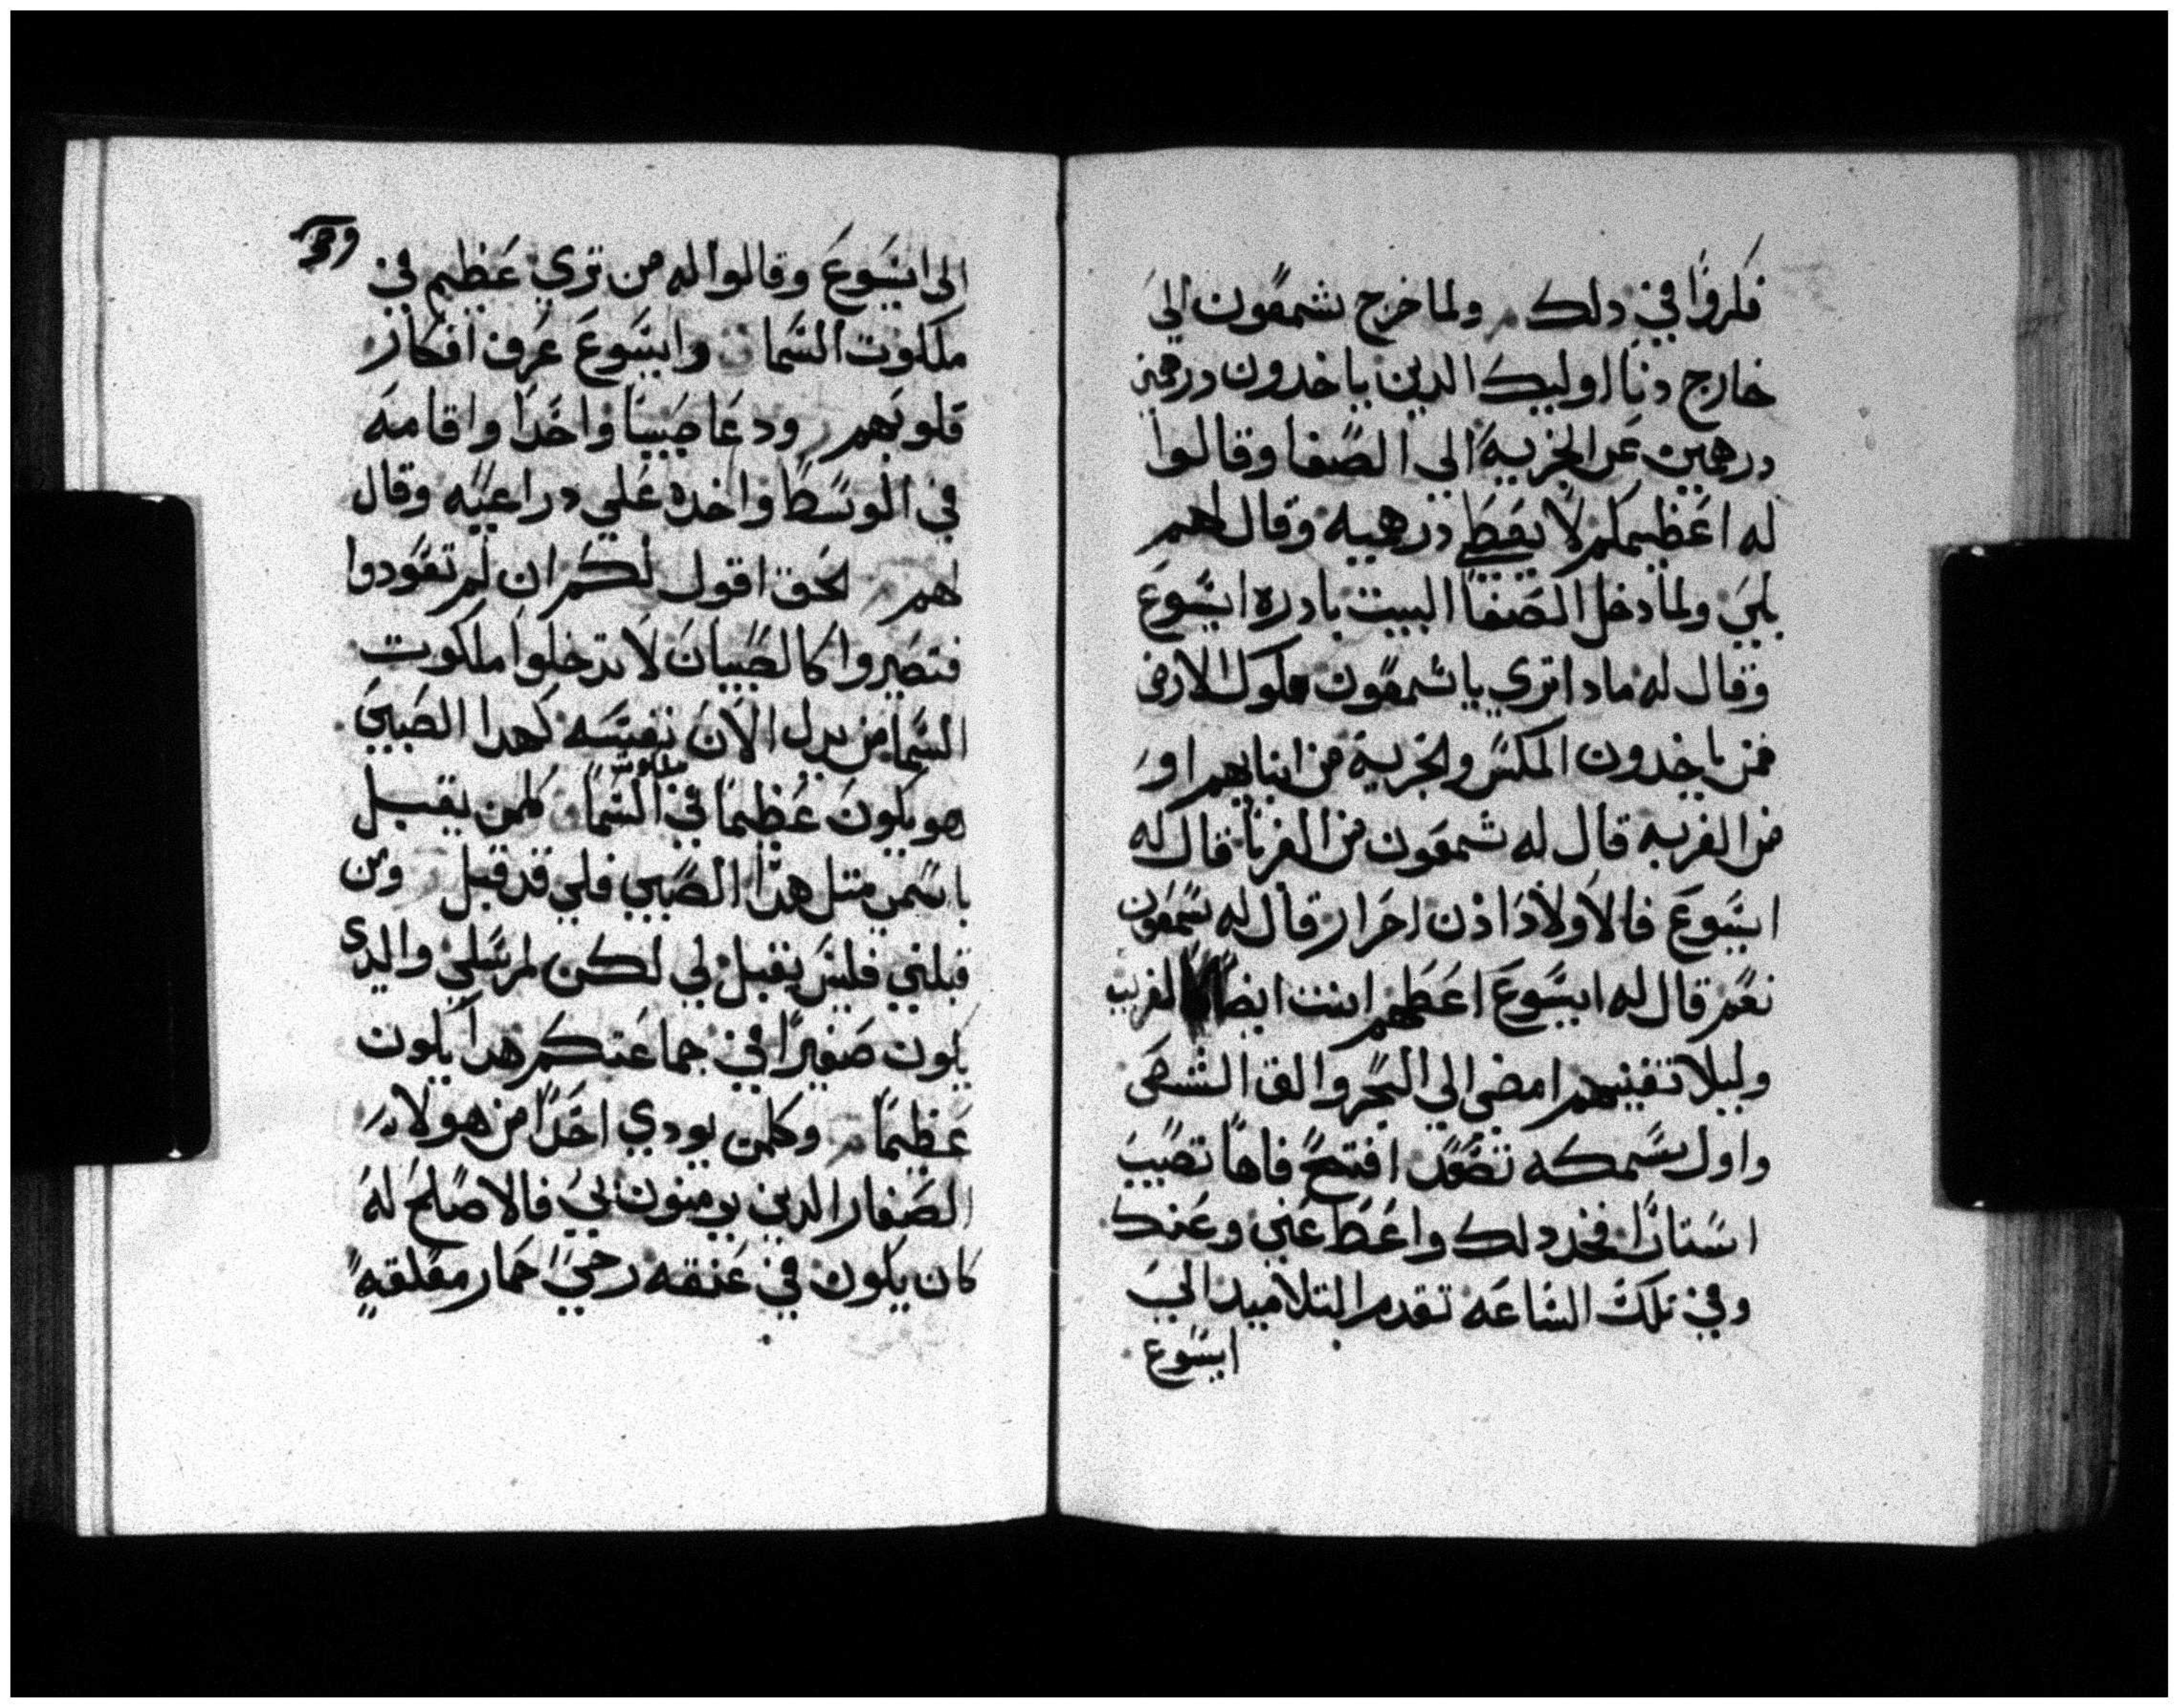 فكروا في دلك ولما خرج شمعون الي
خارج دنا اوليك الدين ياخدون درهمين
درهمين عن الجزيه الي الصفا وقالوا
له اعظيمكم لا يعطي درهميه وقال لهم
بلي ولما دخل الصفا البيت بادره ايسوع
وقال له مادا تري يا شمعون ملوك الارض
فمن ياخدون المكس والجزية من ابنايهم او
من الغربه قال له شمعون من الغربا قال له
ايسوع فالاولاد اذن احرار قال له شمعون
نعم قال له ايسوع اعطهم انت ايضا كالغريب
وليلا تغنيهم امضي الي البحر والق الشص
واول سمكه تصعد افتح فاها تصيب
استارا فخد دلك واعط عني وعنك
وفي تلك الساعه تقدم التلاميد الي
ايسوع
39
الي ايسوع وقالوا له من تري عظيم في
ملكوت السما وايسوع عرف افكار
قلوبهم ودعا صبيا واحدا واقامه
في الوسط واخده علي دراعيه وقال
لهم لحق اقول لكم ان لم تعودوا
فتصيروا كالصبيان لا تدخلوا ملكوت
السما من يدل الان نفسه كهدا الصبي
هو يكون عظيما في ملكوت السما كلمن يقبل
باسمي متل هدا الصبي فلي قد قبل ومن
قبلني فليس يقبل لي لكن لمرسلي والدي
يكون صغيرا في جماعتكم هدا يكون
عظيما وكلمن يودي احدا من هولا
الصغار الدين يومنون بي فالاصلح له
كان يكون في عنقه رحي حمار معلقه